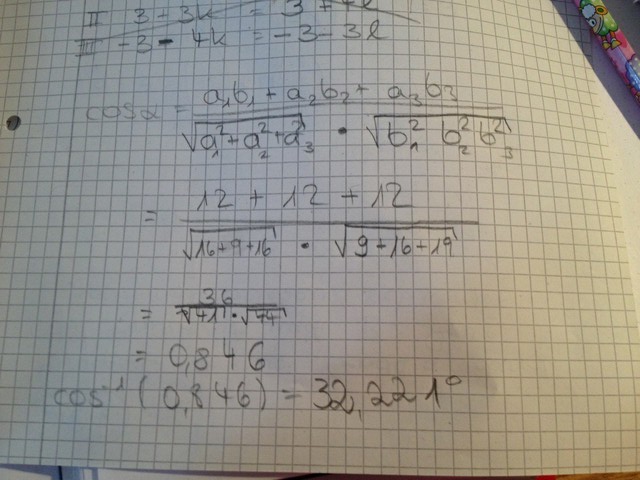 II 3 + 3k = 3 + 4l
III -3 - 4k = -3 - 3l
cos α = a₁b₁ + a₂b₂ + a₃b₃
√a₁² + a₂² + a₃² · √b₁² b₂² b₃²
= 12 + 12 + 12
√16+9+16 · √9+16+19
= 36
√41 · √44
= 0,846
cos⁻¹ (0,846) = 32,221°